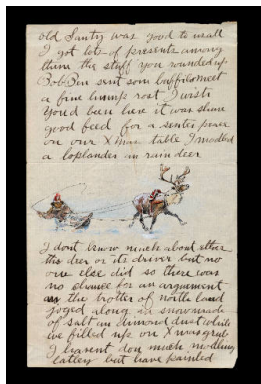 old Santy was good to us all
I got lots of presents among
them the stuff you rounded up
Bob Ben sent som buffilo meet
a fine hump rost I wish
You'd been here it was shure
good feed for a senter peace
on our Xmas table I modled
a loplander an rain deer
I dont know much about ether
this deer or its driver but no
one else did so there was
no chance for an arguement
the trotter of north land
joged along in snow made
of salt an dimond dust while
we filled up on Xmas grub
I havent don much modling
latley but have painted